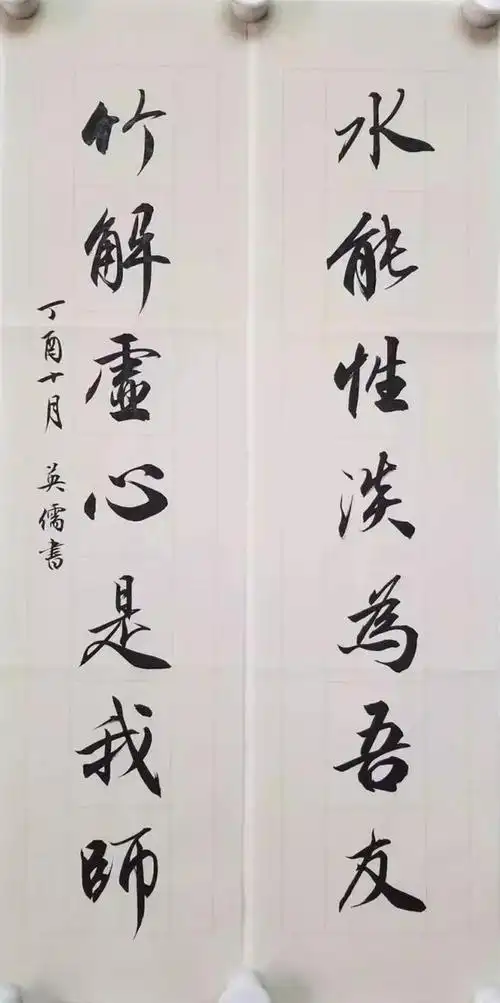 水能性淡為吾友
竹解虛心是我師
丁酉十月 英儒書